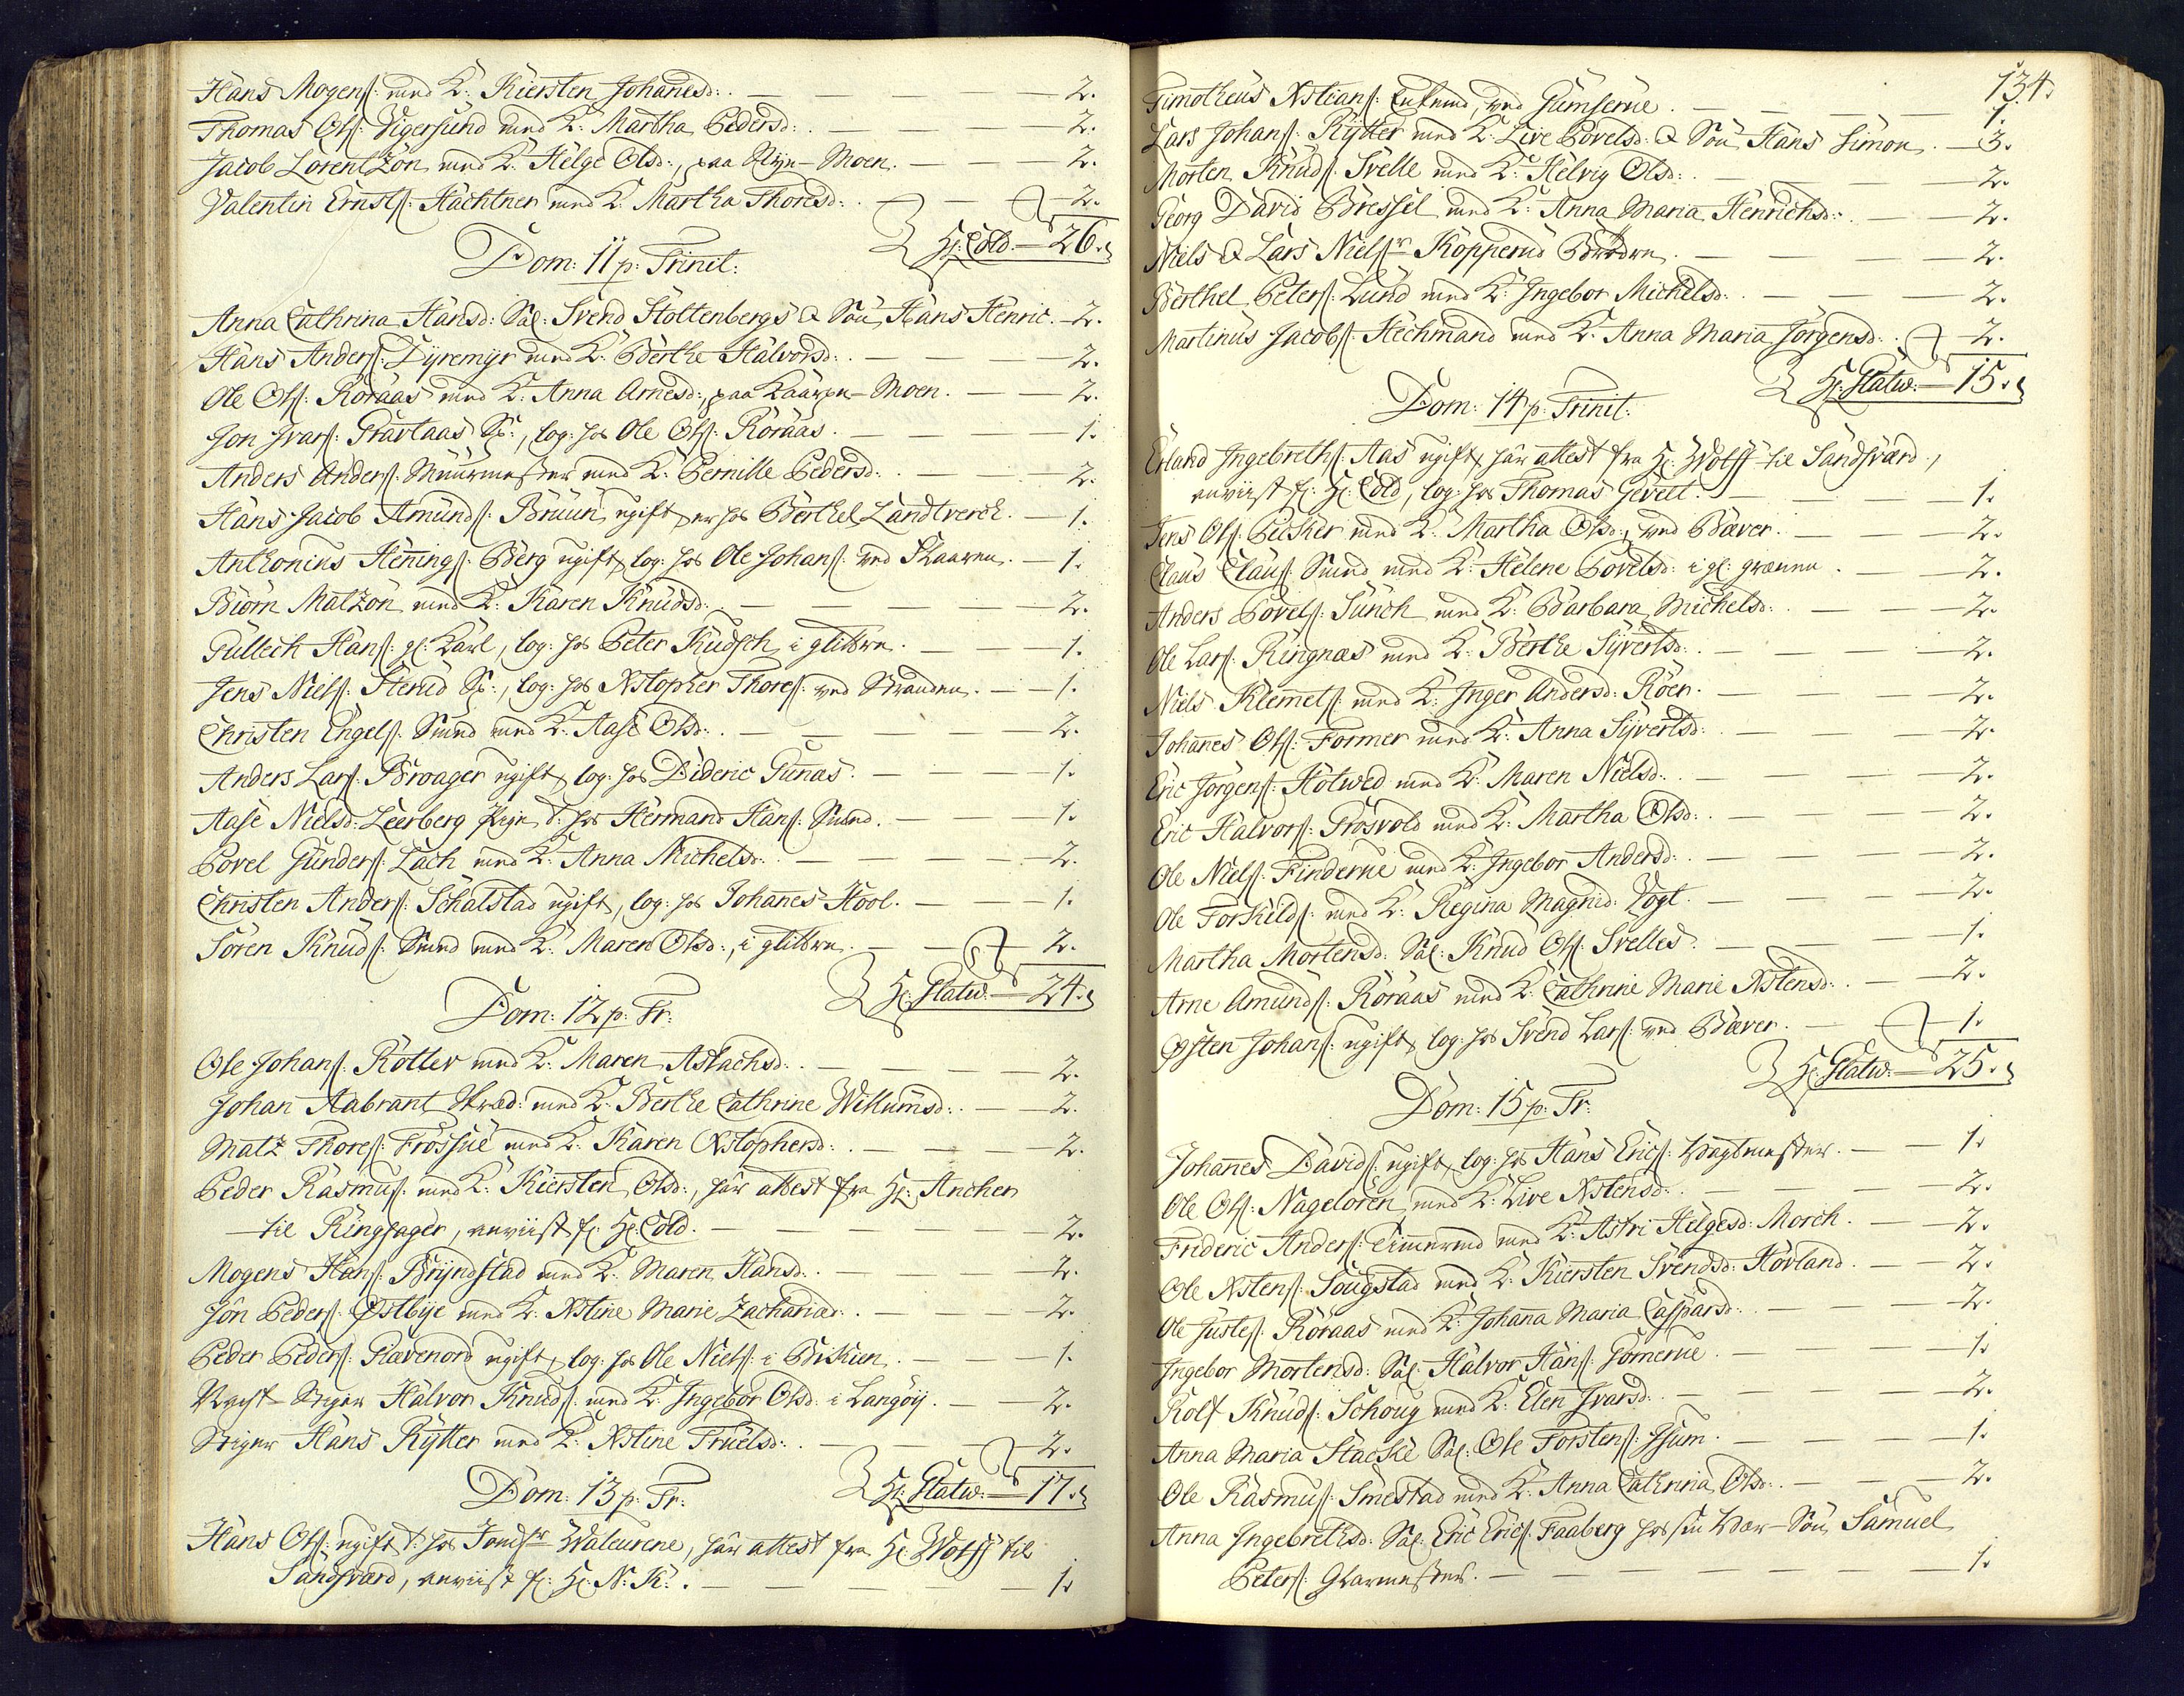 Hans Mogenss: med K: Kiersten Johanesd: . — 2.
Thomas Olss: Vigersund med K: Martha Pedersd: . — 2.
Jacob Lorentzon med K: Helge Olsd:, paa Nye-Moen. — 2.
Valentin Ernstss: Hachtner med K: Martha Thoresd: . — 2.
Hr: Cold. — 26.
Dom: 11 p: Trinit:
Anna Cathrina Hansd: Sal: Svend Stoltenbergs & Søn Hans Henric. — 2.
Hans Anderss: Dyremyr med K: Berthe Halvorsd: . — 2.
Ole Olss: Röraas med K: Anna Arnesd:, paa Moen. — 2.
Jon Ivarss: Gravlaas Sr:, log: hos Ole Olss: Röraas. — 1.
Anders Anderss: Muurmester med K: Pernille Pedersd: . — 2.
Hans Jacob Amundss: Bruun ugift, er hos Berthel Landtverck. — 1.
Anthonius Henningss: Berg ugift, log: hos Ole Johanss: ved Skaaren. — 1.
Biörn Matzon med K: Karen Knudsd: . — 2.
Tullech Hanss: gl: Karl, log: hos Peter Kudsch i glittre. — 1.
Jens Nielss: Stenid Sr:, log: hos Xstopher Thoress: ved Stranden. — 1.
Christen Engelss: Smed med K: Aase Olsd: . — 2.
Anders Larss: Broager ugift, log: hos Dideric Gunas. — 1.
Aase Nielsd: Leerberg Pige, t: hos Hermand Hanss: Smed. — 1.
Povel Gunderss: Lach med K: Anna Michelsd: . — 2.
Christen Anderss: Schalstad ugift, log: hos Johannes Hool. — 1.
Sören Knudss: Smed med K: Maren Olsd:, i glittre. — 2.
Hr: Flatw. — 24.
Dom: 12 p: Tr:
Ole Johanss: Rotter med K: Maren Aslachsd: . — 2.
Johan Aabrant Skræd: med K: Berthe Cathrine Willumsd: . — 2.
Matz Thoress: Frössue med K: Karen Xstophersd: . — 2.
Peder Rasmuss: med K: Kiersten Olsd:, har attest fra Hr: Ancher
til Ringsager, anviist fr: Hr: Cold. — 2.
Mogens Hanss: Bryndstad med K: Maren Hansd: . — 2.
Jon Pederss: Østbye med K: Xstine Marie Zachariad: . — 2.
Peder Pederss: Flævenord ugift, log: hos Ole Nielss: i Birkien. — 1.
Stiger Halvor Knudss: med K: Ingebor Olsd: i Langöy. — 2.
Stiger Hans Rytter med K: Xstine Truelsd: . — 2.
Hr: Flatw. — 17.
Dom: 13 p: Tr:
Hans Olss: ugift t: hos Jomfr Waleurene, har attest fra Hr: Wolff til
Sandsværd, anviist fr: Hr: N: K: . — 1.
134.
Timotheus Xstianss: Enkemd, ved Gumserue. — 1.
Lars Johanss: Rytter med K: Live Povelsd: & Søn Hans Simon. — 3.
Morten Knudss: Svelle med K: Helvig Olsd: . — 2.
Georg David Bressel med K: Anna Maria Henrichsd: . — 2.
Niels & Lars Nielssr Kopperud Brödre. — 2.
Berthel Peterss: Lund med K: Ingebor Michelsd: . — 2.
Martinus Jacobss: Hechmand med K: Anna Maria Jörgensd: . — 2.
Hr: Flatw. — 15.
Dom: 14 p: Trinit:
Erland Ingebrethss: Aas ugift, har attest fra Hr: Wolff til Sandsværd,
anviist fr: Hr: Cold, log: hos Thomas Gevelt. — 1.
Jens Olss: Beisker med K: Martha Olsd:, ved Bæver. — 2.
Claus Clauss: Smed med K: Helene Povelsd: i gl: grænnen. — 2.
Anders Povelss: Junch med K: Barbara Michelsd: . — 2.
Ole Larss: Ringnæs med K: Berthe Syvertsd: . — 2.
Niels Klemetss: med K: Inger Andersd: Röen. — 2.
Johannes Olss: Former med K: Anna Syvertsd: . — 2.
Eric Jörgenss: Holwed med K: Maren Nielsd: . — 2.
Eric Halvorss: Grosvold med K: Martha Olsd: . — 2.
Ole Nielss: Finderue med K: Ingebor Andersd: . — 2.
Ole Torkeldss: med K: Regina Magnid: Vogt. — 2.
Martha Mortensd: Sal: Knud Olss: Svelles. — 1.
Arne Amundss: Röraas med K: Cathrine Marie Xstensd: . — 2.
Østen Johanss: ugift, log: hos Svend Larss: ved Bæver. — 1.
Hr: Flatw. — 25.
Dom: 15 p: Tr:
Johannes Davidss: ugift, log: hos Hans Ericss: Vagtmester. — 1.
Ole Olss: Nageloren med K: Live Xstensd: . — 2.
Frideric Anderss: Timermd med K: Astri Helgesd: Morch. — 2.
Ole Xstenss: Sougstad med K: Kiersten Svendsd: Hovland. — 2.
Ole Justess: Röraas med K: Johana Maria Caspersd: . — 2.
Ingebor Mortensd: Sal: Halvor Hanss: Gomerue. — 1.
Rolf Knudss: Schoug med K: Elen Ivarsd: . — 2.
Anna Maria Stacke Sal: Ole Torstenss: Gjum. — 1.
Ole Rasmuss: Smestad med K: Anna Cathrina Olsd: . — 2.
Anna Ingebrethsd: Sal: Eric Ericss: Faaberg hos sin Svær-Søn Samuel
Peterss: Glarmester. — 1.